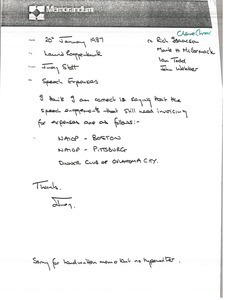 Memorandum
- 20th January 1987
- Laurie Roggenburk
- Judy Stott
- Speech Expenses
cc Rich Isaacson
Mark H. McCormack
Ian Todd
John Webber
I think I am correct in saying that the
speech engagements that still need invoicing
for expenses are as follows:-
NAIOP - BOSTON
NAIOP - PITTSBURG
DINNER CLUB OF OKLAHOMA CITY.
Thanks.
Judy.
Sorry for handwritten memo but no typewriter.